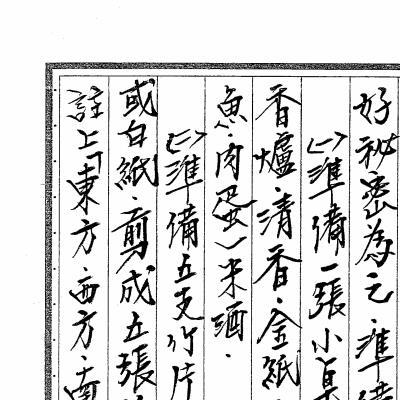 好秘密為之·準備
(一)準備一張小桌
香爐·清香·金紙·
魚·肉蛋、米酒·
(二)準備五支竹片
或白紙·剪成五張
註上「東方·西方·南